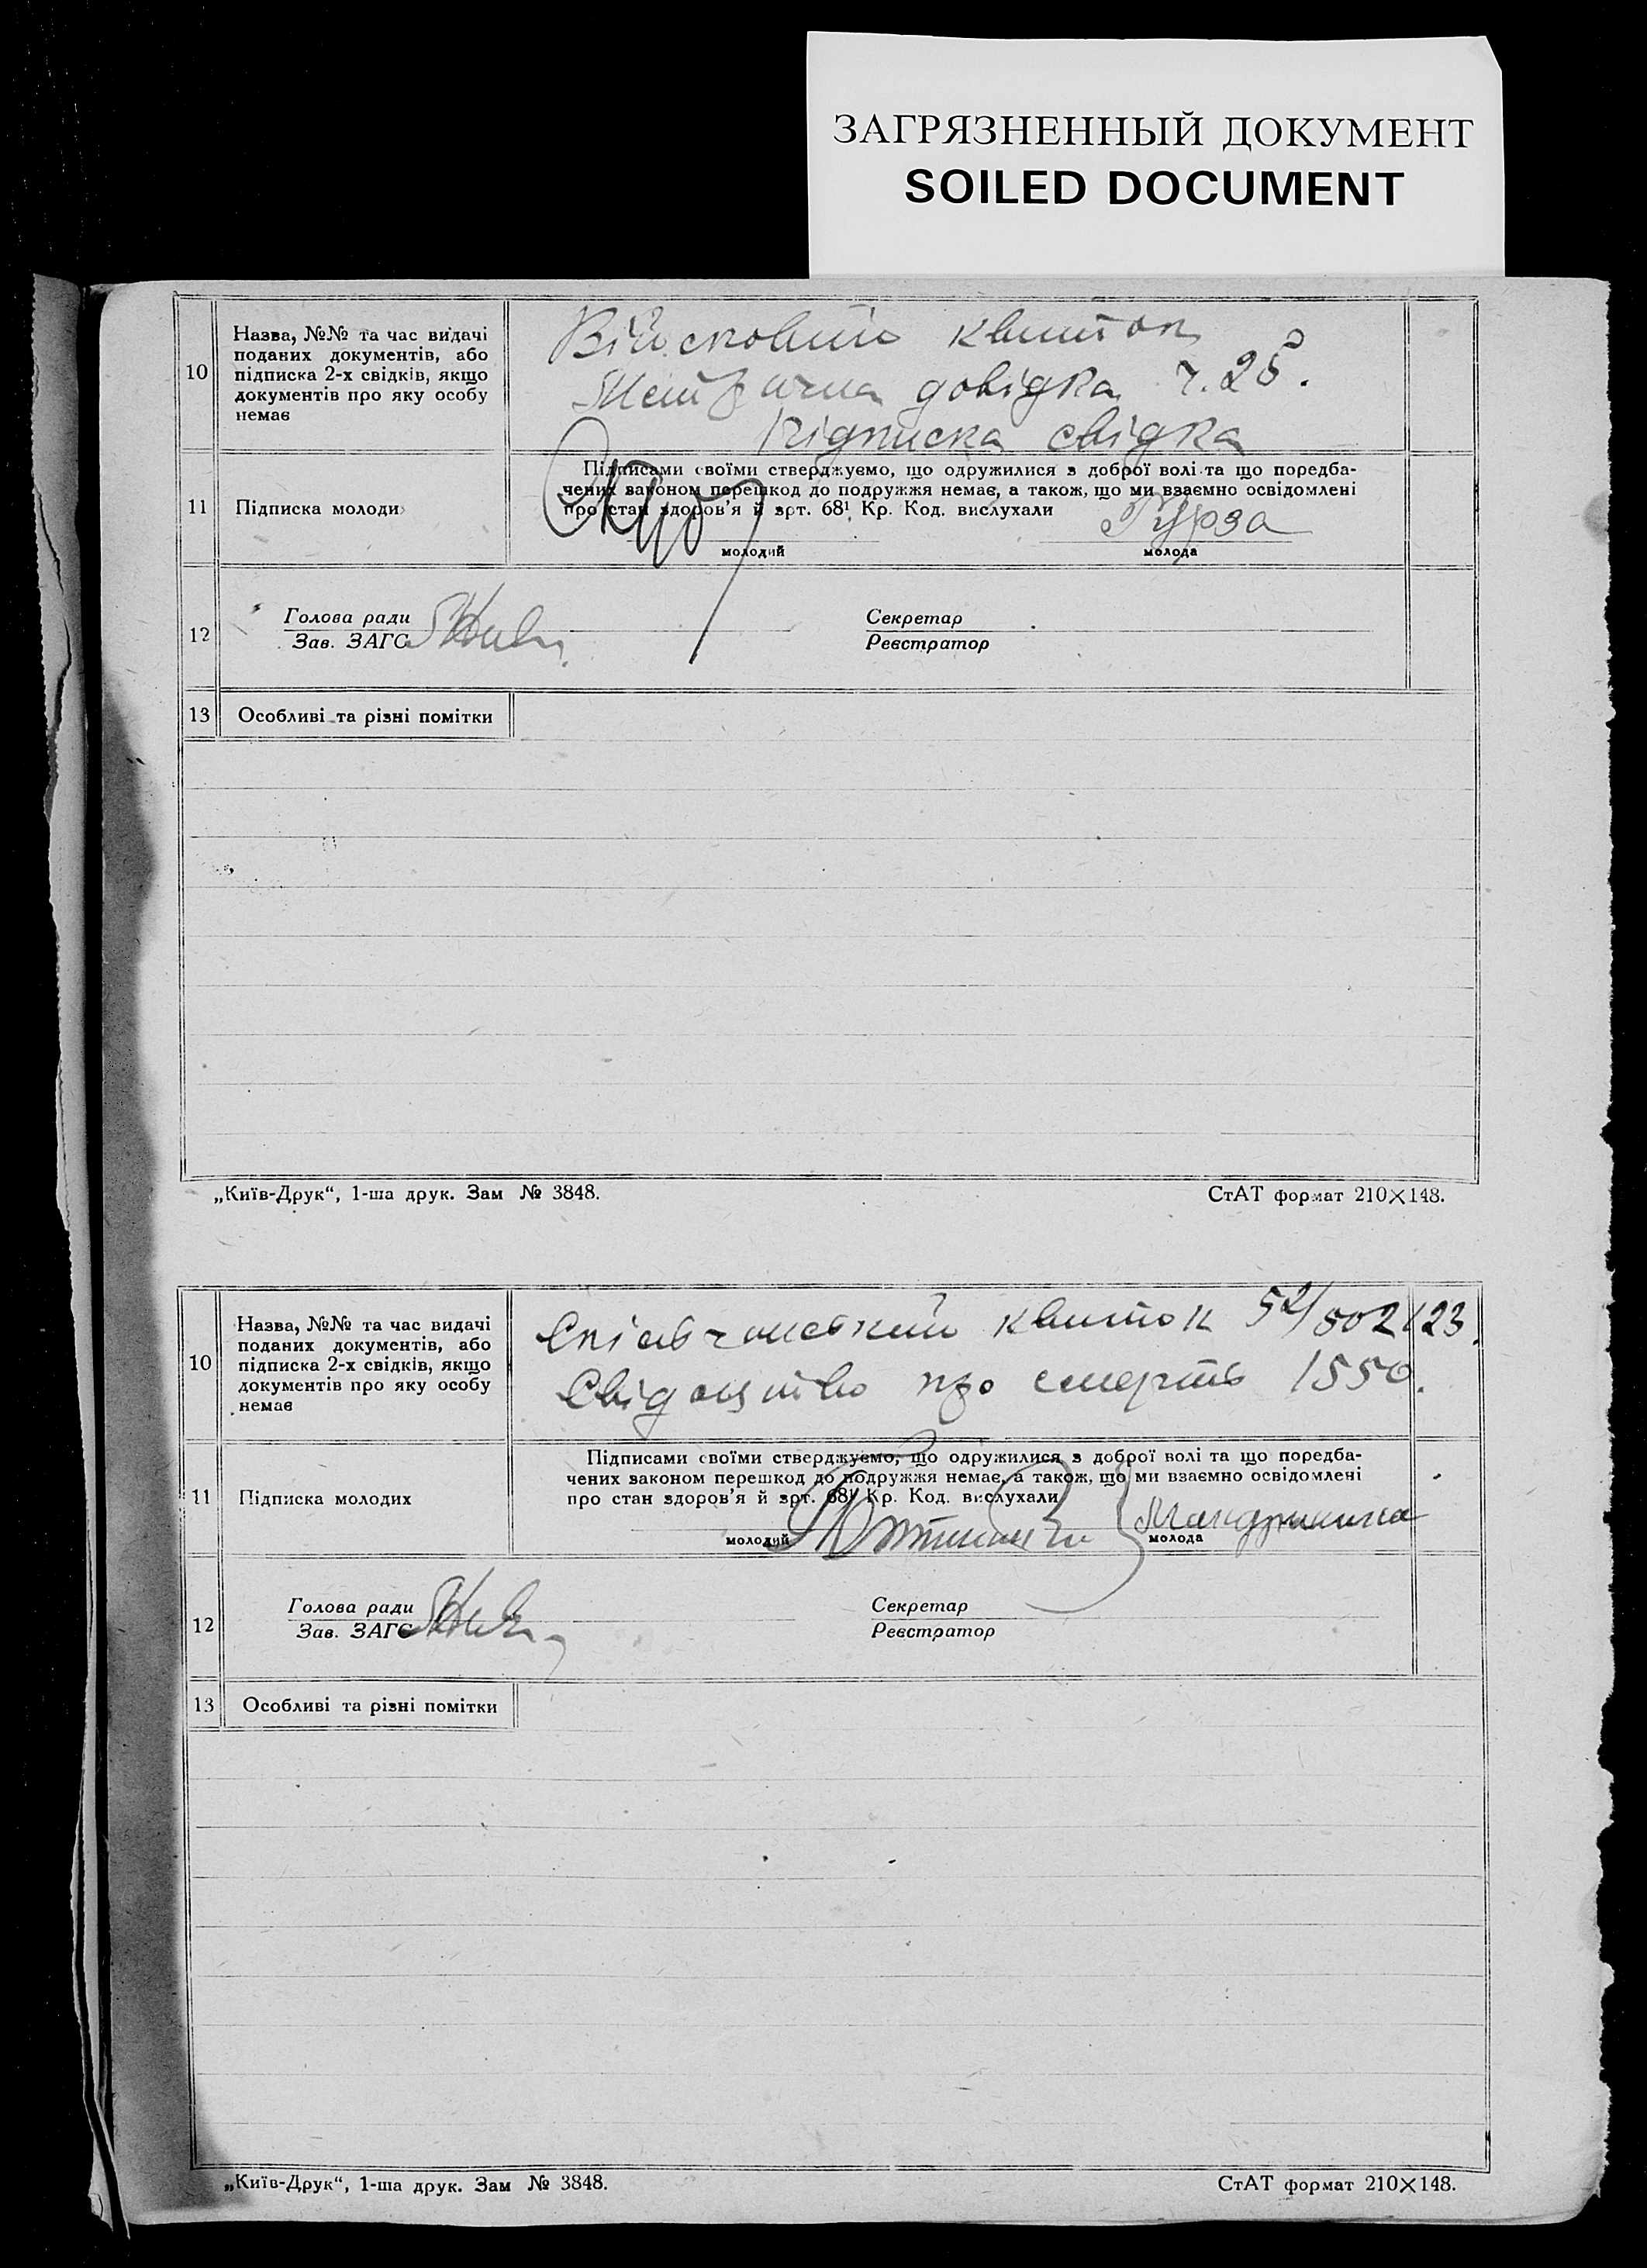 ЗАГРЯЗНЕННЫЙ ДОКУМЕНТ
SOILED DOCUMENT
10
Назва, №№ та час видачі
поданих документів, або
підписка 2-х свідків, якщо
документів про яку особу
немає
Військовий квиток
Метрична довідка ч. 25.
Підписка свідка
11
Підписка молоди
Підписами своїми стверджуємо, що одружилися з доброї волі та що поредба-
чених законом перешкод до подружжя немає, а також, що ми взаємно освідомлені
про стан здоров'я й арт. 68¹ Кр. Код. вислухали
Гурза
молодий
молода
12
Голова ради
Зав. ЗАГС
Секретар
Реєстратор
13
Особливі та різні помітки
„Київ-Друк“, 1-ша друк. Зам № 3848.
СтАТ формат 210×148.
10
Назва, №№ та час видачі
поданих документів, або
підписка 2-х свідків, якщо
документів про яку особу
немає
квиток 52/802123.
Свідоцтво про смерть 1550.
11
Підписка молодих
Підписами своїми стверджуємо, що одружилися з доброї волі та що поредба-
чених законом перешкод до подружжя немає, а також, що ми взаємно освідомлені
про стан здоров'я й арт. 68¹ Кр. Код. вислухали
молодий
молода
12
Голова ради
Зав. ЗАГС
Секретар
Реєстратор
13
Особливі та різні помітки
„Київ-Друк“, 1-ша друк. Зам № 3848.
СтАТ формат 210×148.